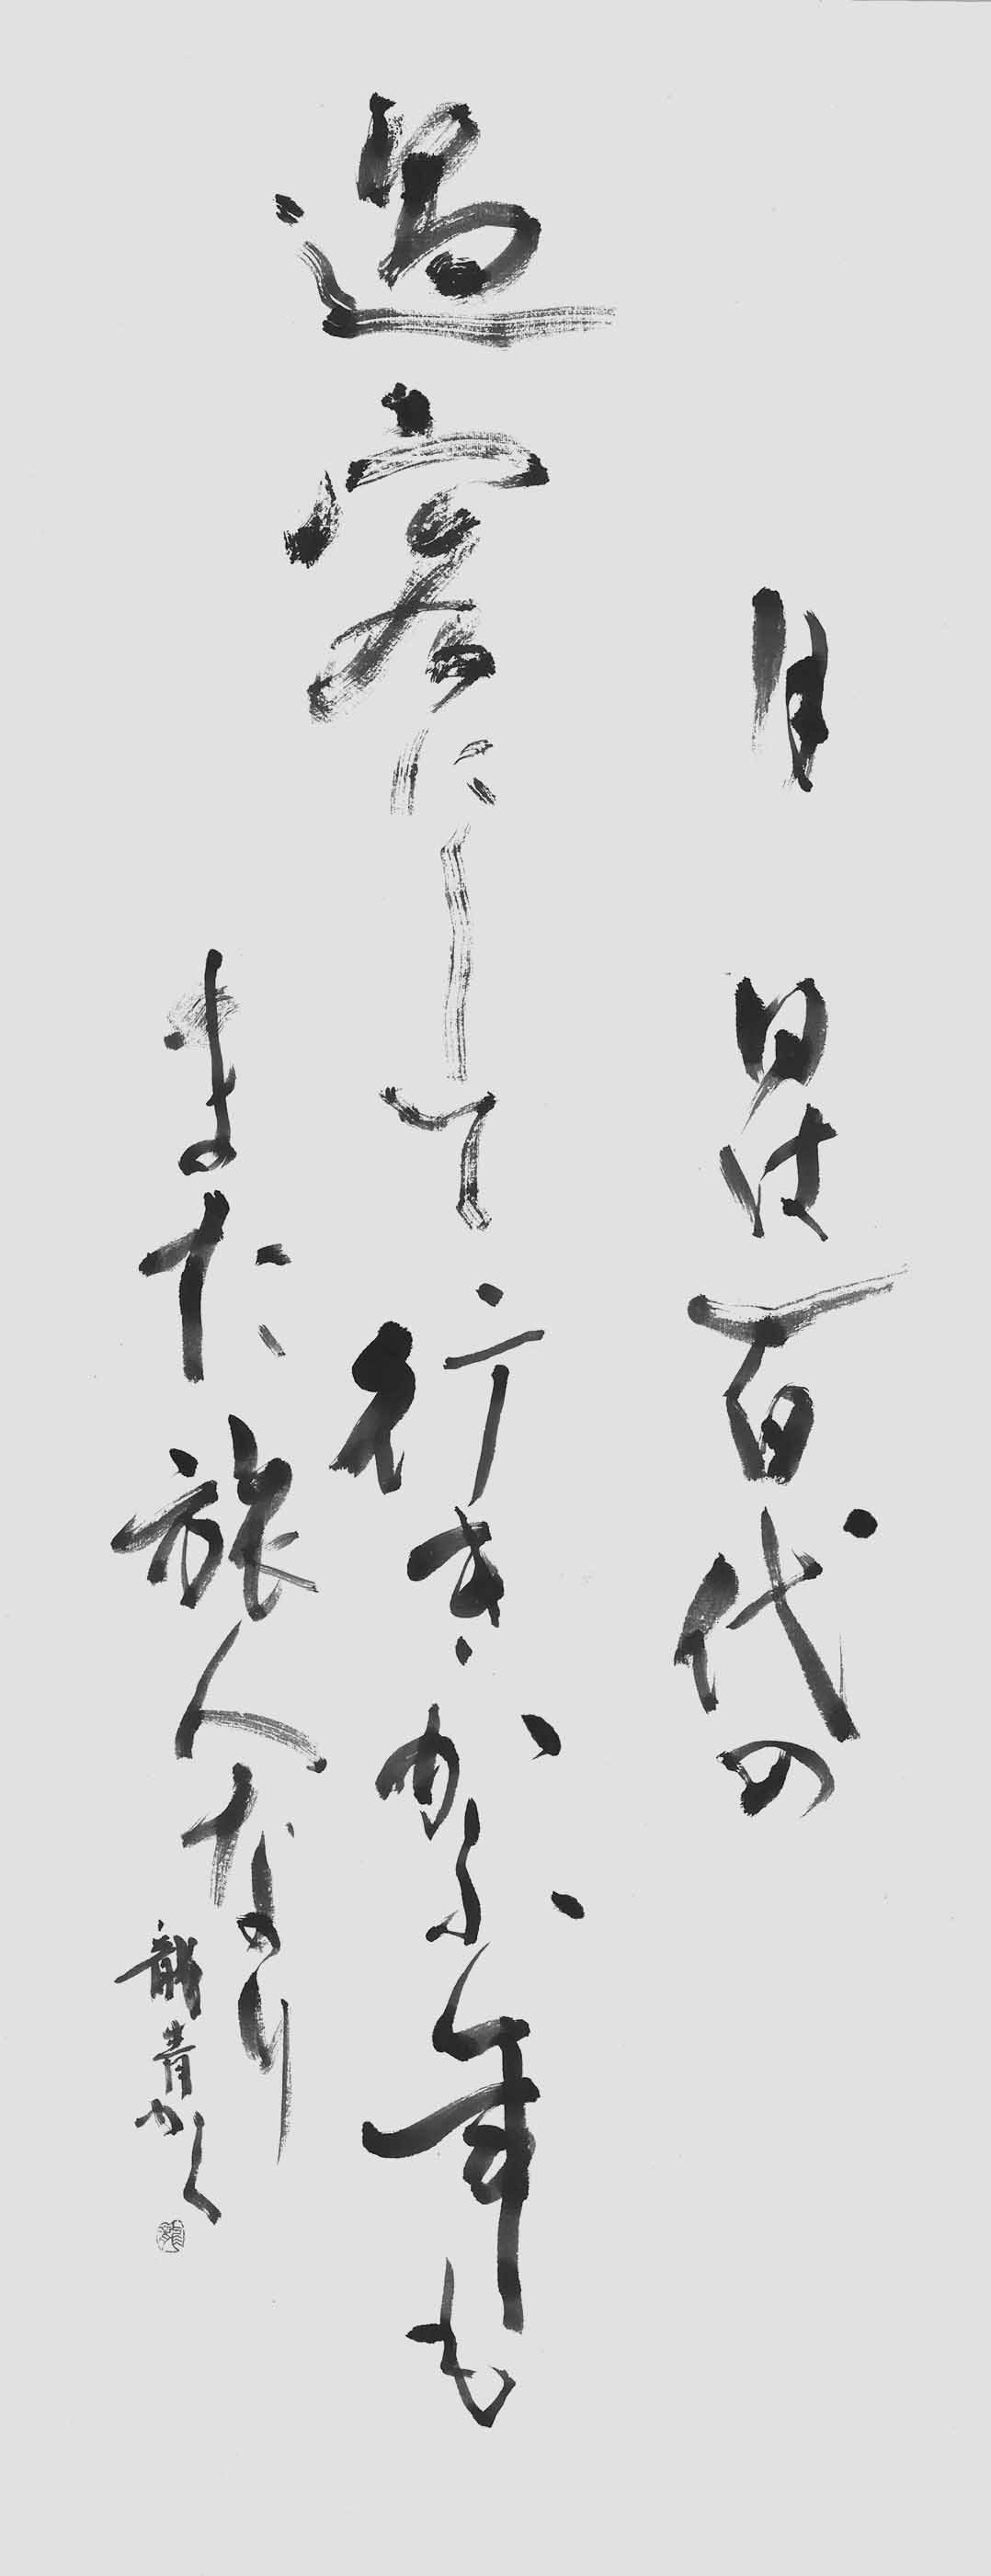 月日は百代の
過客にして行きかふ年も
また旅人なり
龍青かく